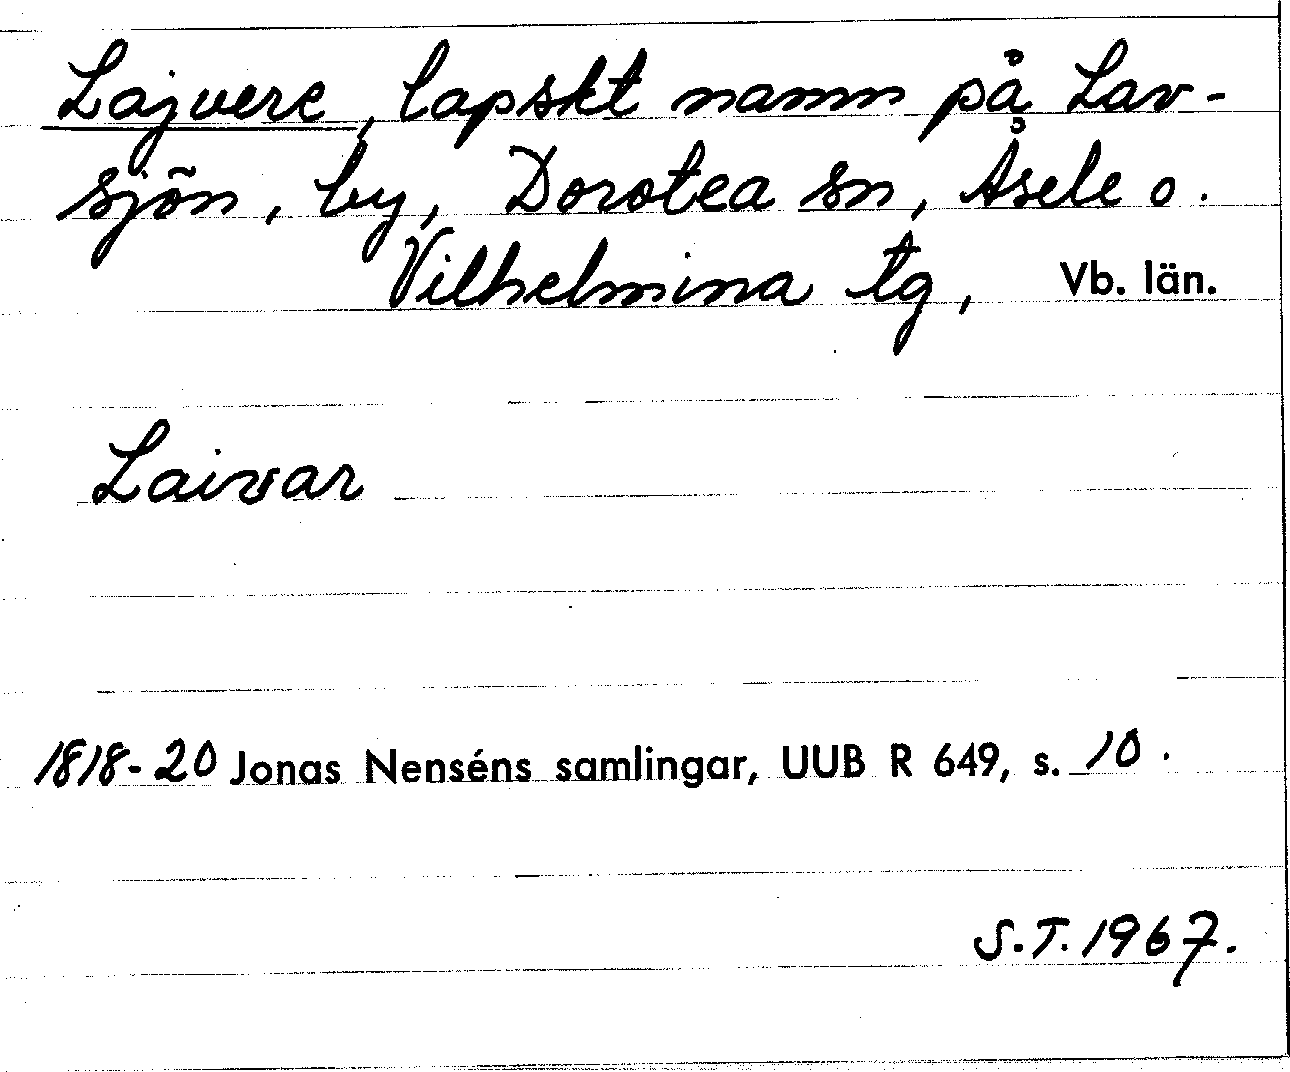 Lajvere, lapskt namn på Lav-
sjön, by, Dorotea sn, Åsele o.
Vilhelmina tg, Vb. län.
Laivar
1818-20 Jonas Nenséns samlingar, UUB R 649, s. 10.
S.T. 1967.